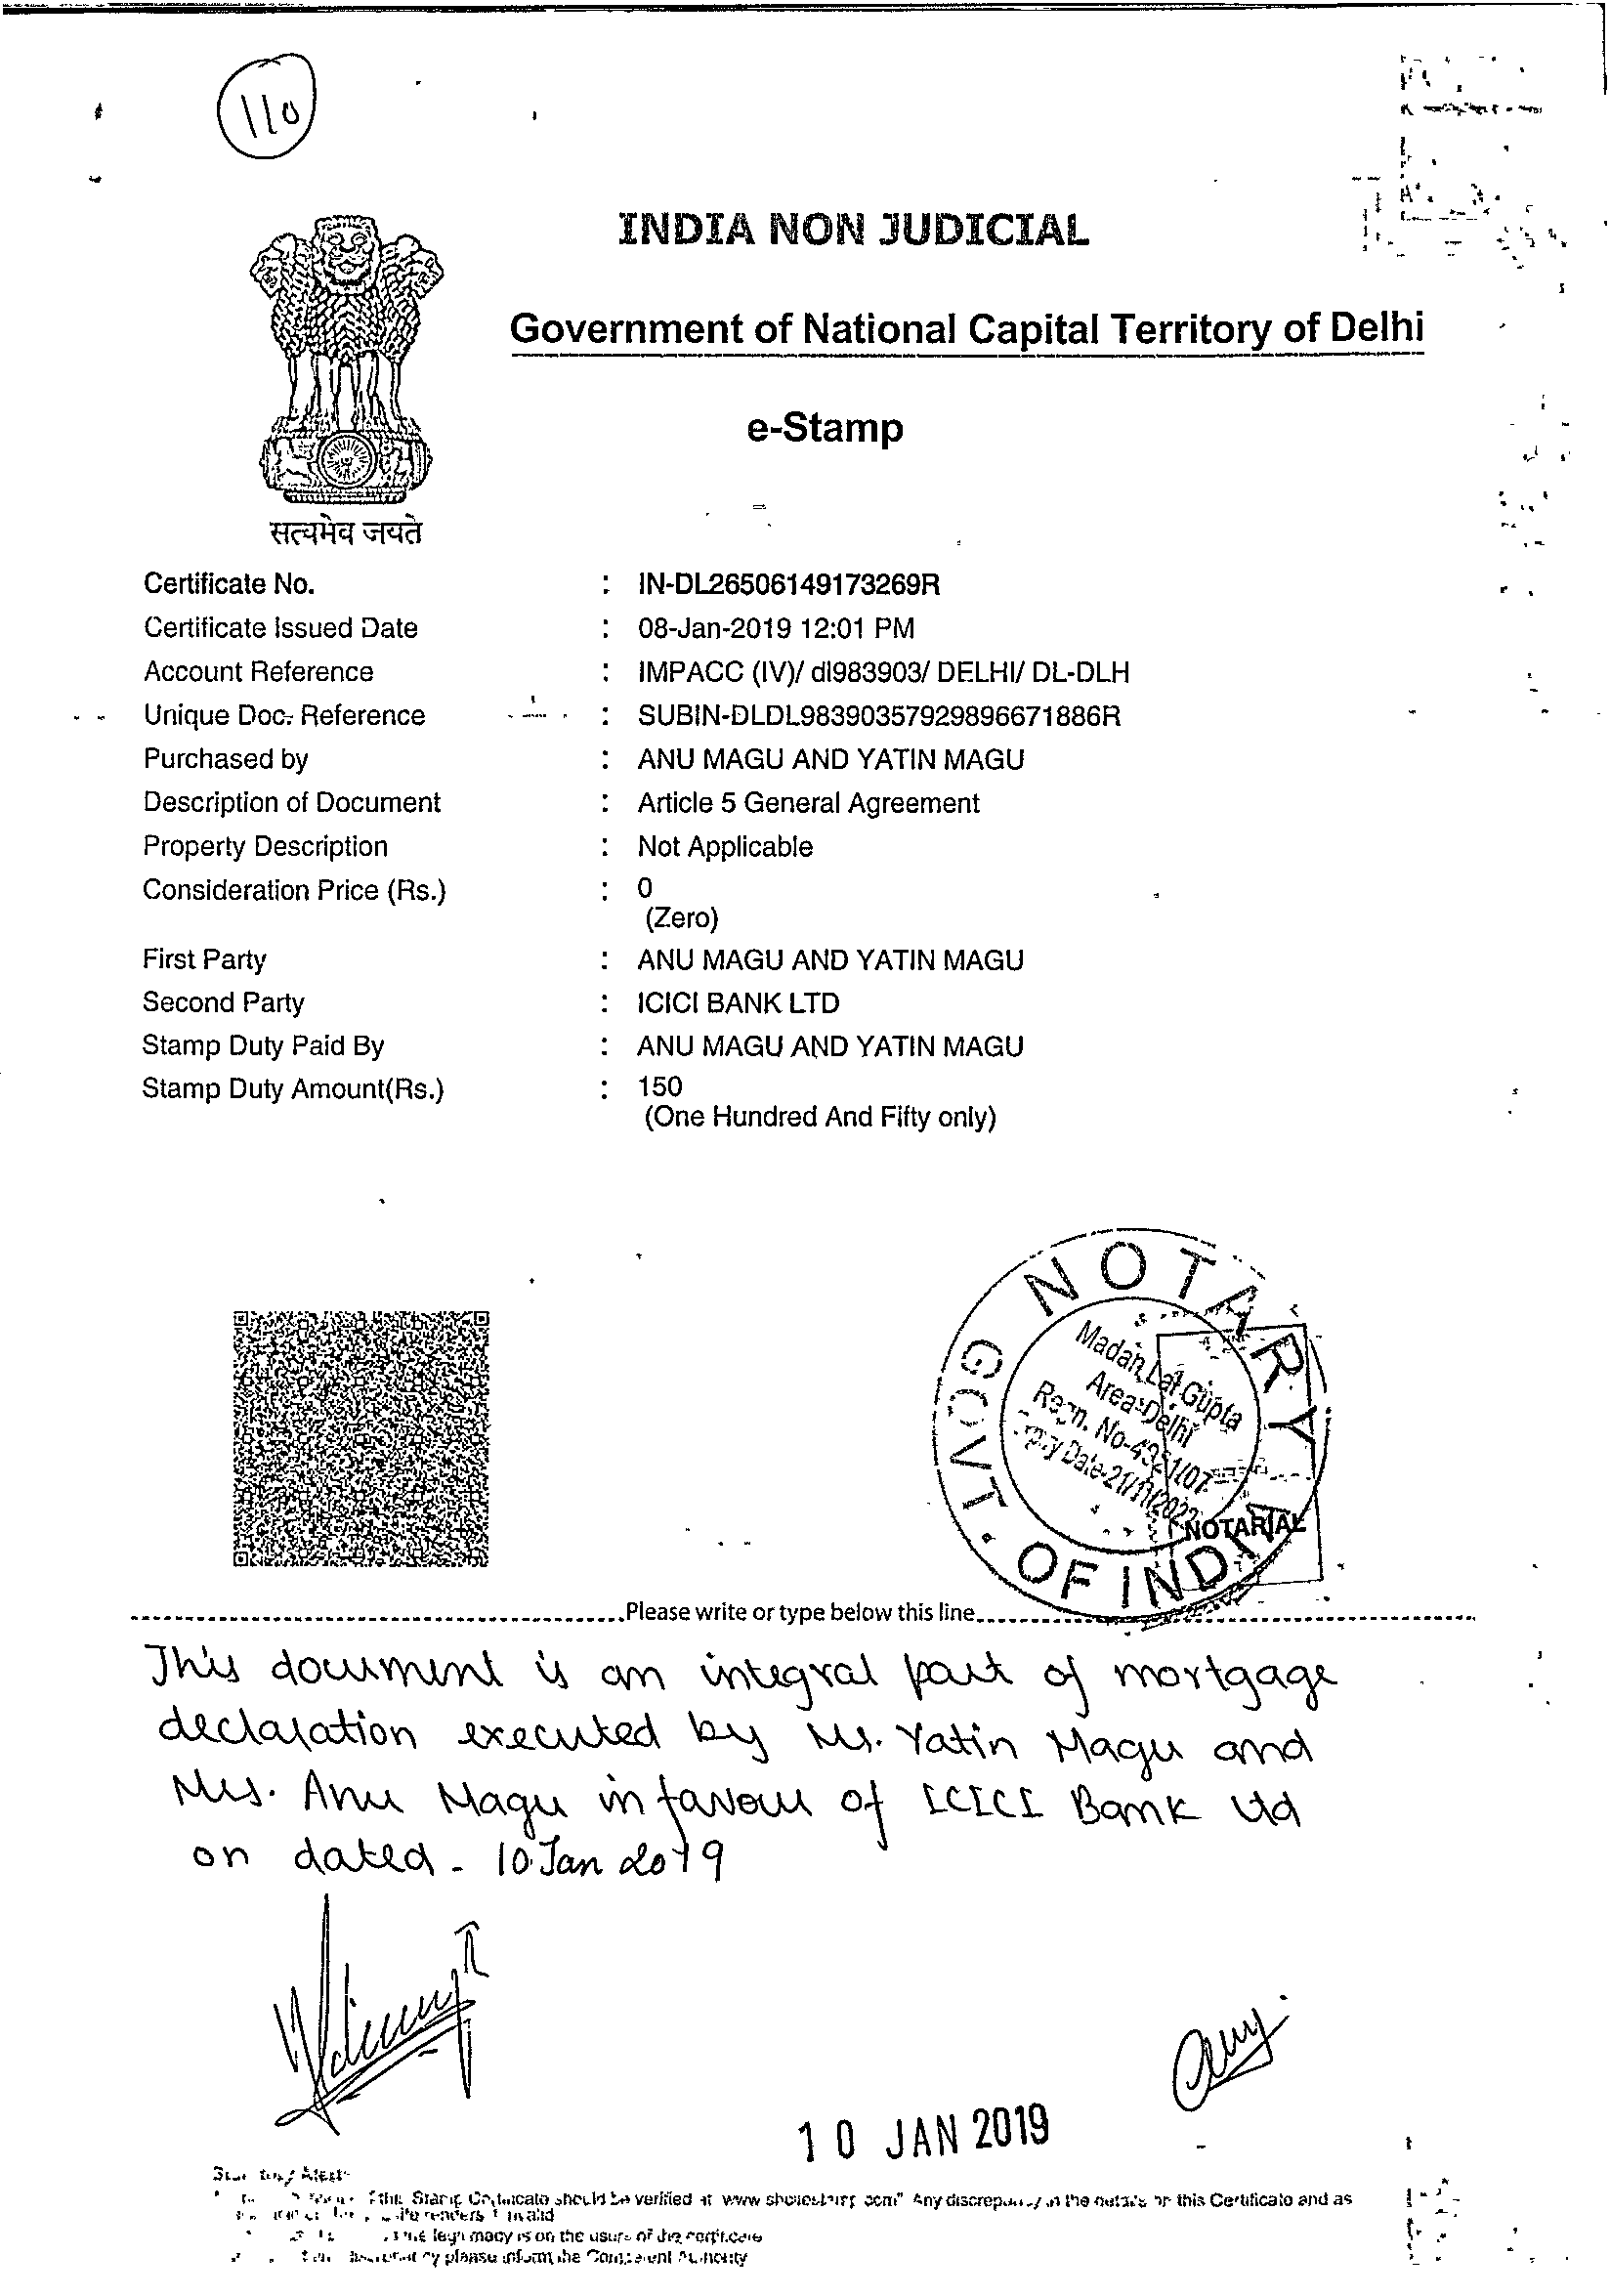 110
INDIA NON JUDICIAL
Government of National Capital Territory of Delhi
e-Stamp
सत्यमेव जयते
Certificate No. : IN-DL26506149173269R
Certificate Issued Date : 08-Jan-2019 12:01 PM
Account Reference : IMPACC (IV)/ dl983903/ DELHI/ DL-DLH
Unique Doc. Reference : SUBIN-DLDL98390357929896671886R
Purchased by : ANU MAGU AND YATIN MAGU
Description of Document : Article 5 General Agreement
Property Description : Not Applicable
Consideration Price (Rs.) : 0
(Zero)
First Party : ANU MAGU AND YATIN MAGU
Second Party : ICICI BANK LTD
Stamp Duty Paid By : ANU MAGU AND YATIN MAGU
Stamp Duty Amount(Rs.) : 150
(One Hundred And Fifty only)
NOTARY
GOVT. OF INDIA
Madan Lal Gupta
Area-Delhi
Regn. No-
Date-21/11/2022
NOTARIAL
Please write or type below this line
This document is an integral part of mortgage
declaration executed by Mr. Yatin Magu and
Mrs. Anu Magu in favour of ICICI Bank Ltd
on dated - 10 Jan 2019
10 JAN 2019
Stamp Certificate should be verified at Any discrepancy in the details on this Certificate and as
renders it invalid
legitimacy is on the users of the certificate
please inform the Competent Authority